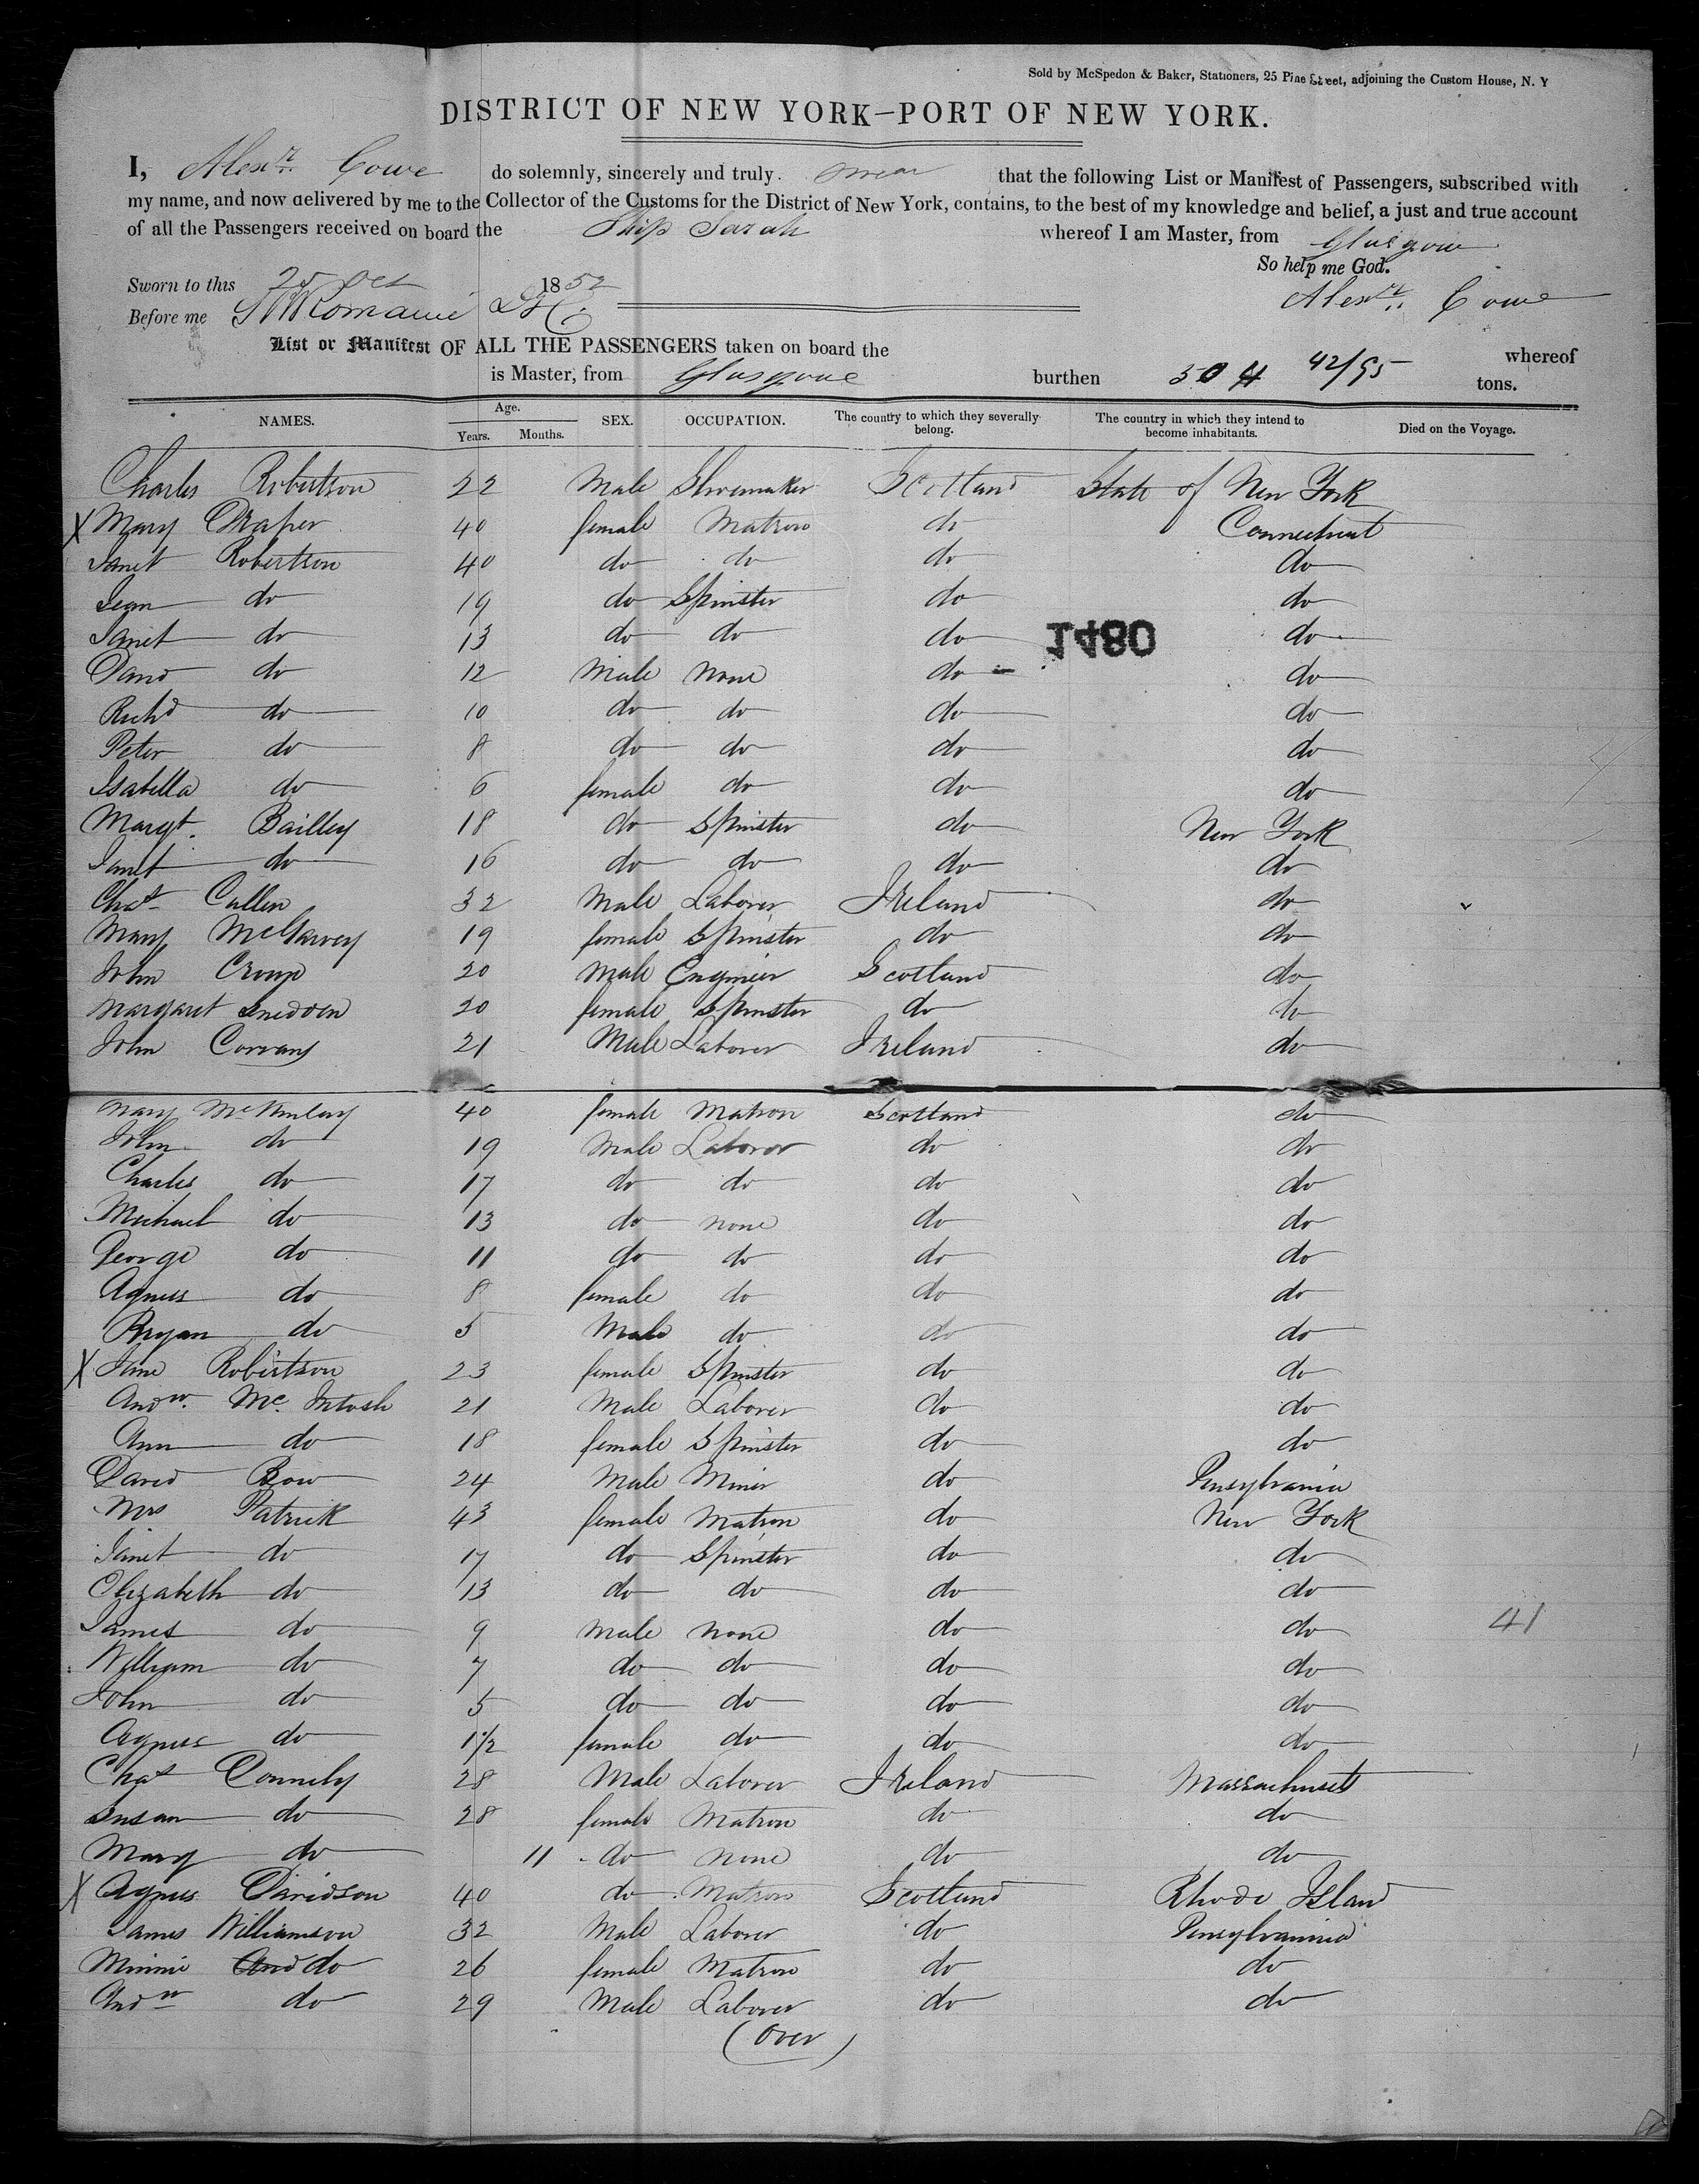 Sold by McSpedon & Baker, Stationers, 25 Pine Street, adjoining the Custom House, N. Y
DISTRICT OF NEW YORK—PORT OF NEW YORK.
I, Alexr. Cowe do solemnly, sincerely and truly swear that the following List or Manifest of Passengers, subscribed with
my name, and now delivered by me to the Collector of the Customs for the District of New York, contains, to the best of my knowledge and belief, a just and true account
of all the Passengers received on board the Ship Sarah whereof I am Master, from Glasgow
So help me God.
Sworn to this 25 Oct 1852 Alexr. Cowe
Before me
List or Manifest OF ALL THE PASSENGERS taken on board the whereof
is Master, from Glasgow burthen 504 42/95 tons.
NAMES. Age. Years. Months. SEX. OCCUPATION. The country to which they severally belong. The country in which they intend to become inhabitants. Died on the Voyage.
Charles Robertson 22 Male Shoemaker Scotland State of New York
X Mary Draper 40 female Matron do Connecticut
Janet Robertson 40 do do do do
Jean do 19 do Spinster do do
Janet do 13 do do do do
1480
David do 12 Male None do do
Richd do 10 do do do do
Peter do 8 do do do do
Isabella do 6 female do do do
Margt. Bailley 18 do Spinster do New York
Janet do 16 do do do do
Chas Cullen 32 Male Laborer Ireland do
Mary McGarvey 19 female Spinster do do
John Croup 20 Male Engineer Scotland do
Margaret Snedden 20 female Spinster do do
John Corvany 21 Male Laborer Ireland do
Mary McKinlay 40 female Matron Scotland do
John do 19 Male Laborer do do
Charles do 17 do do do do
Michael do 13 do none do do
George do 11 do do do do
Agnes do 8 female do do do
Bryan do 5 Male do do do
X Jane Robertson 23 female Spinster do do
Andw. Mc. Intosh 21 Male Laborer do do
Ann do 18 female Spinster do do
David Bow 24 Male Miner do Pensylvania
Mrs Patrick 43 female Matron do New York
Janet do 17 do Spinster do do
Elizabeth do 13 do do do do
James do 9 Male none do do 41
William do 7 do do do do
John do 5 do do do do
Agnes do 1 1/2 female do do do
Chas Donnely 28 Male Laborer Ireland Massachusets
Susan do 28 female Matron do do
Mary do 11 do none do do
X Agnes Davidson 40 do Matron Scotland Rhode Island
James Williamson 32 Male Laborer do Pensylvania
Minnie do 26 female Matron do do
Andw do 29 Male Laborer do do
(Over)